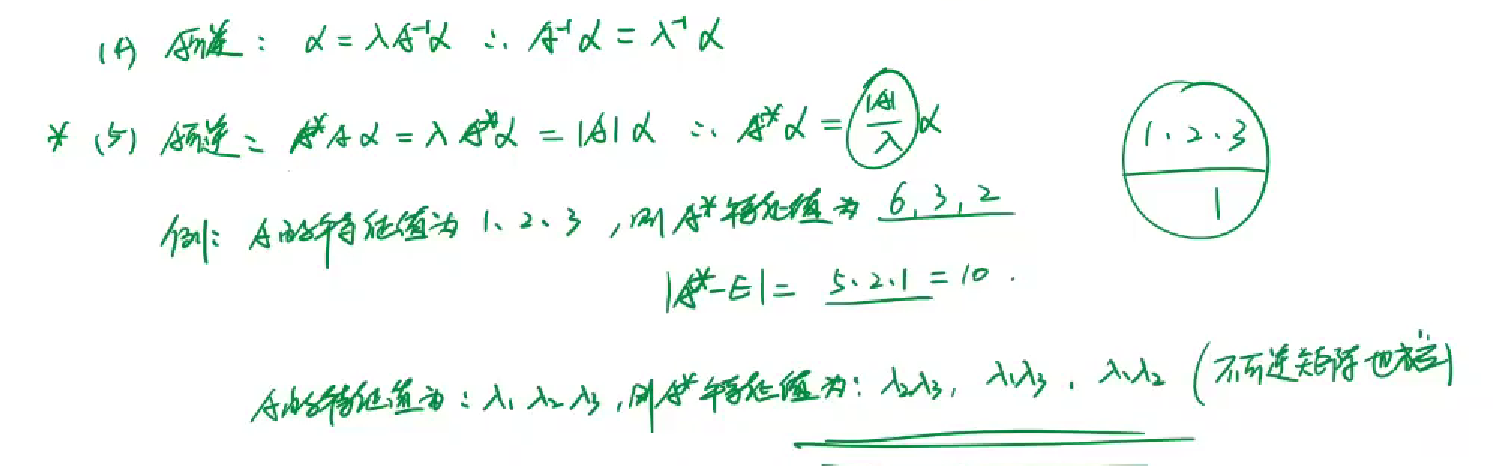 (4) A可逆: α = λA⁻¹α ∴ A⁻¹α = λ⁻¹α
* (5) A可逆: A*Aα = λA*α = |A|α ∴ A*α = |A|/λ α
1·2·3
1
例: A的特征值为 1、2、3, 则A*特征值为 6, 3, 2
|A*-E| = 5·2·1 = 10.
A的特征值为: λ₁ λ₂ λ₃, 则A*特征值为: λ₂λ₃, λ₁λ₃, λ₁λ₂ (不可逆矩阵也成立)